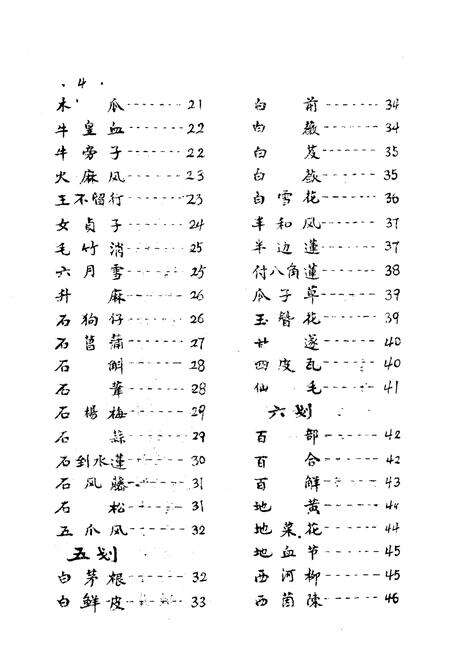 · 4 ·
木 瓜-------21
牛皇血-------22
牛旁子-------22
火麻风-------23
王不留行------23
女贞子-------24
毛竹消-------25
六月雪-------25
升 麻-------26
石狗仔-------26
石菖蒲-------27
石 斛-------28
石 苇-------28
石楊梅-------29
石 蒜-------29
石到水蓮------30
石风藤-------31
石 松-------31
五爪风-------32
五划
白茅根-------32
白鲜皮-------33
白 前-------34
白 薇-------34
白 芨-------35
白 蔹-------35
白雪花-------36
半和风-------37
半边蓮-------37
付八角蓮------38
瓜子草-------39
玉簪花-------39
甘 遂-------40
四皮瓦-------40
仙 毛-------41
六划
百 部-------42
百 合-------42
百 解-------43
地 黄-------44
地菜花-------44
地血节-------45
西河柳-------45
西茵陳-------46